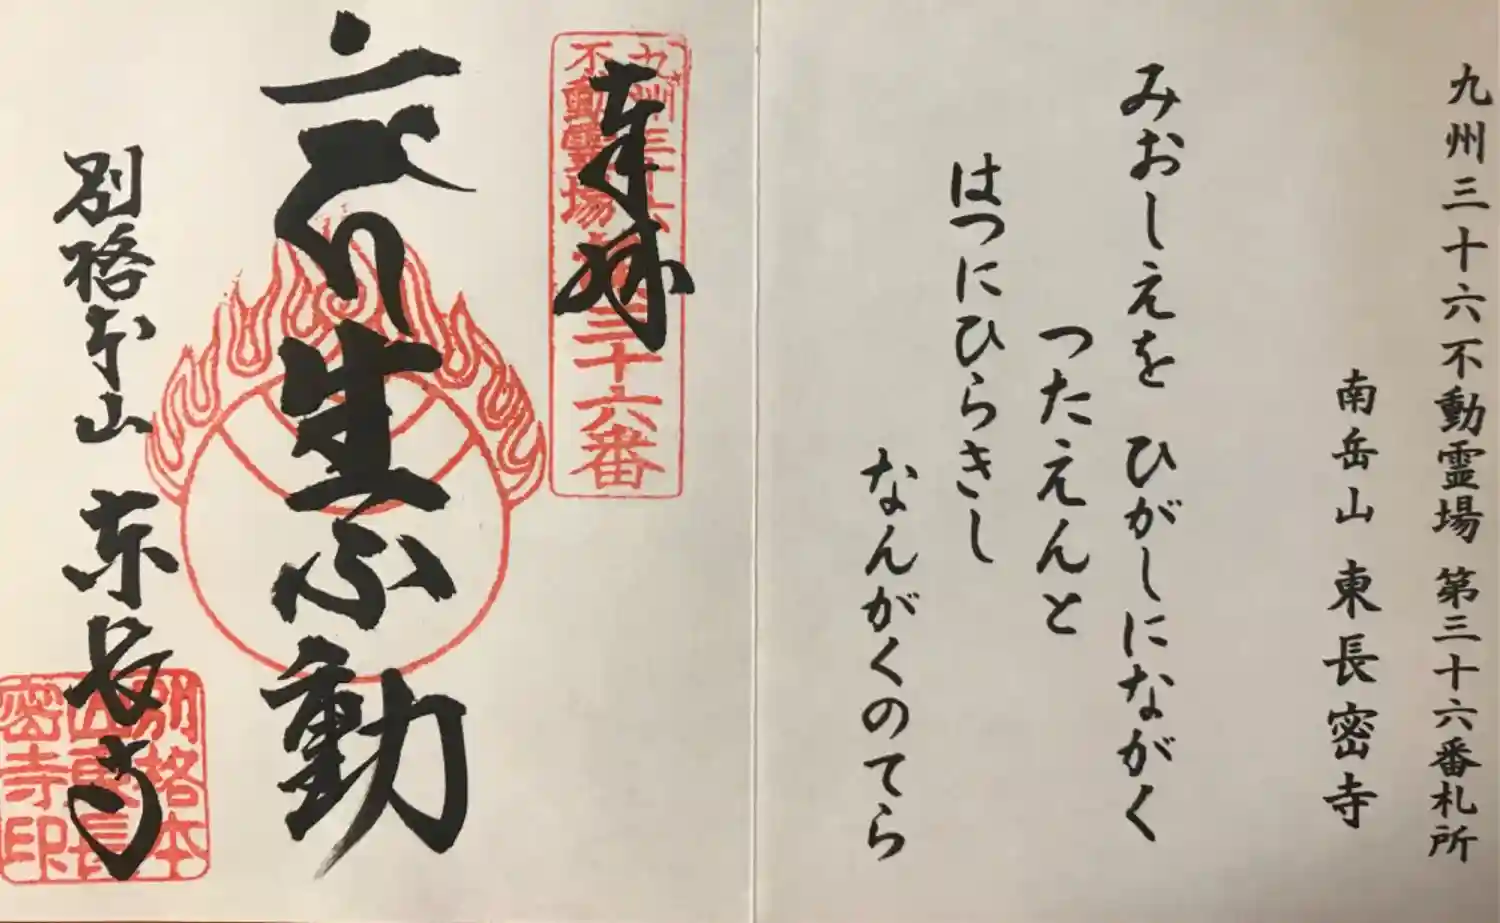 九州三十六不動霊場 第三十六番札所
南岳山 東長密寺
みおしえを ひがしにながく
つたえんと
はつにひらきし
なんがくのてら
奉拝
九州三十六
不動霊場
第三十六番
生ふ動
別格本山 東長寺
別格本
山東長
密寺印